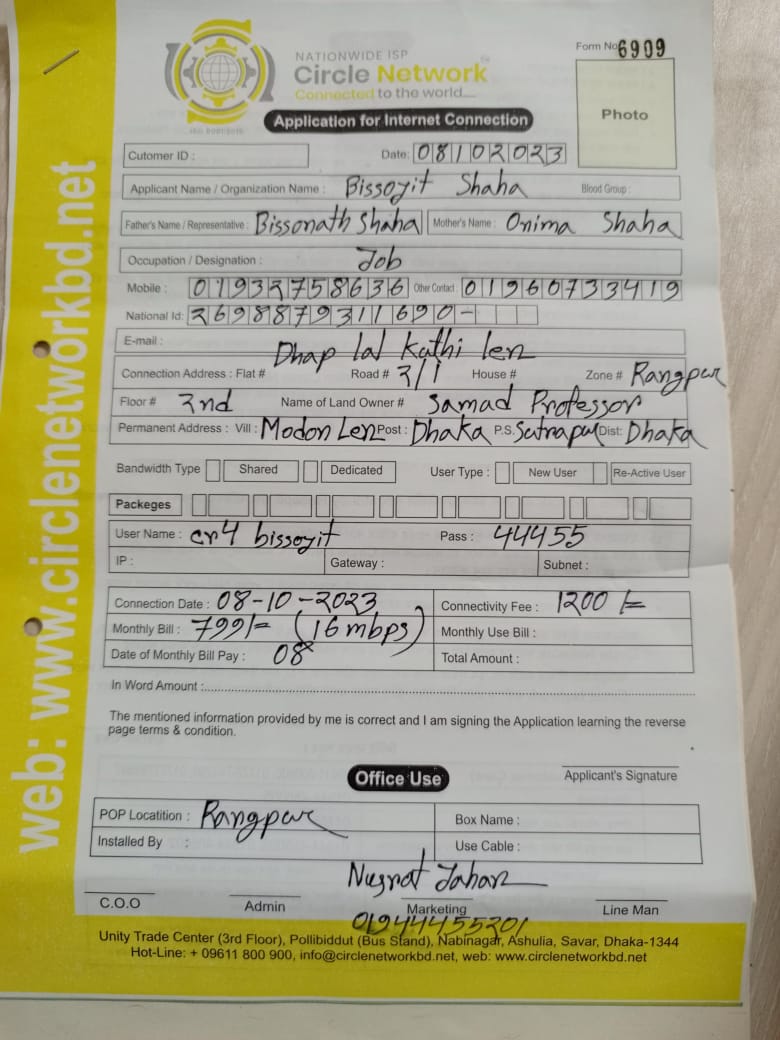 NATIONWIDE ISP
Circle Network
Connected to the world....
Form No 6909
Photo
Application for Internet Connection
Cutomer ID :
Date: 08102023
Applicant Name / Organization Name : Bissoyit Shaha Blood Group :
Father's Name / Representative : Bissonath Shaha Mother's Name : Onima Shaha
Occupation / Designation : Job
Mobile : 01932758636 Other Contact : 01960733419
National Id: 2698879311690-
E-mail :
Dhap lal Kathi len
Connection Address : Flat # Road # 3/1 House # Zone # Rangpur
Floor # 2nd Name of Land Owner # Samad Professor
Permanent Address : Vill : Modon Len Post : Dhaka P.S. Sutrapur Dist: Dhaka
Bandwidth Type Shared Dedicated User Type : New User Re-Active User
Packeges
User Name : cr4 bissoyit Pass : 44455
IP : Gateway : Subnet :
Connection Date : 08-10-2023 Connectivity Fee : 1200/=
Monthly Bill : 799/= (16 mbps) Monthly Use Bill :
Date of Monthly Bill Pay : 08 Total Amount :
In Word Amount :
The mentioned information provided by me is correct and I am signing the Application learning the reverse
page terms & condition.
Applicant's Signature
Office Use
POP Locatition : Rangpur Box Name :
Installed By : Use Cable :
Nusrat Jahan
C.O.O Admin Marketing Line Man
01944455201
Unity Trade Center (3rd Floor), Pollibiddut (Bus Stand), Nabinagar, Ashulia, Savar, Dhaka-1344
Hot-Line: + 09611 800 900, info@circlenetworkbd.net, web: www.circlenetworkbd.net
web: www.circlenetworkbd.net